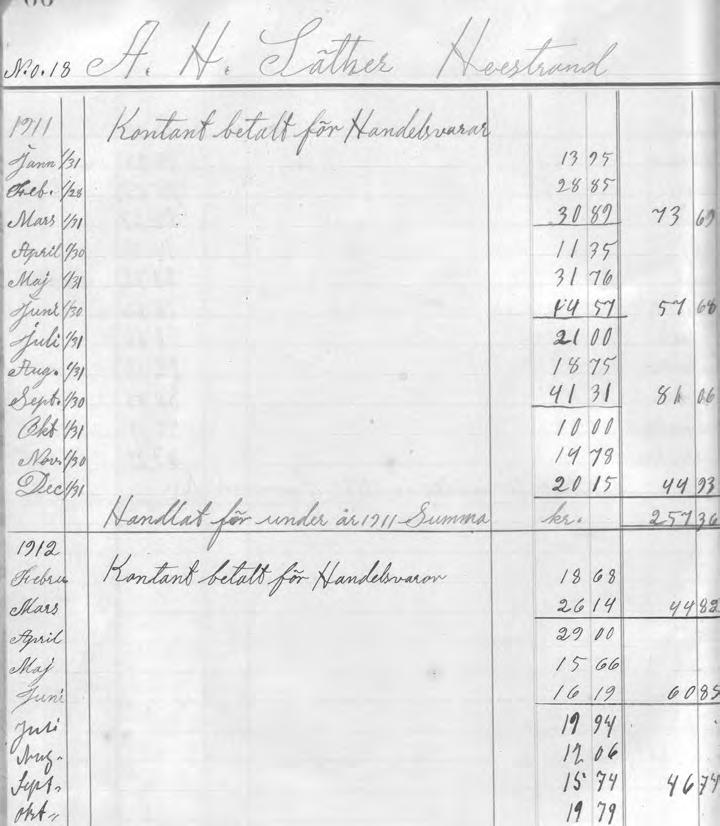 N.o. 18 A. H. Säther Hvestrand
1911 Kontant betalt för Handelsvarar
Jann 1/31 13 95
Feb. 1/28 28 85
Mars 1/31 30 89 73 69
April 1/30 11 35
Maj 1/31 31 76
Juni 1/30 14 57 57 68
Juli 1/31 21 00
Aug. 1/31 18 75
Sept. 1/30 41 31 81 06
Okt 1/31 10 00
Nov. 1/30 14 78
Dec 1/31 20 15 44 93
Handlat för under år 1911 Summa kr. 257 36
1912
Februa Kontant betalt för Handelsvaror 18 68
Mars 26 14 44 82
April 29 00
Maj 15 66
Juni 16 19 60 85
Juli 19 94
Aug- 12 06
Sept- 15 74 46 74
Okt- 19 79